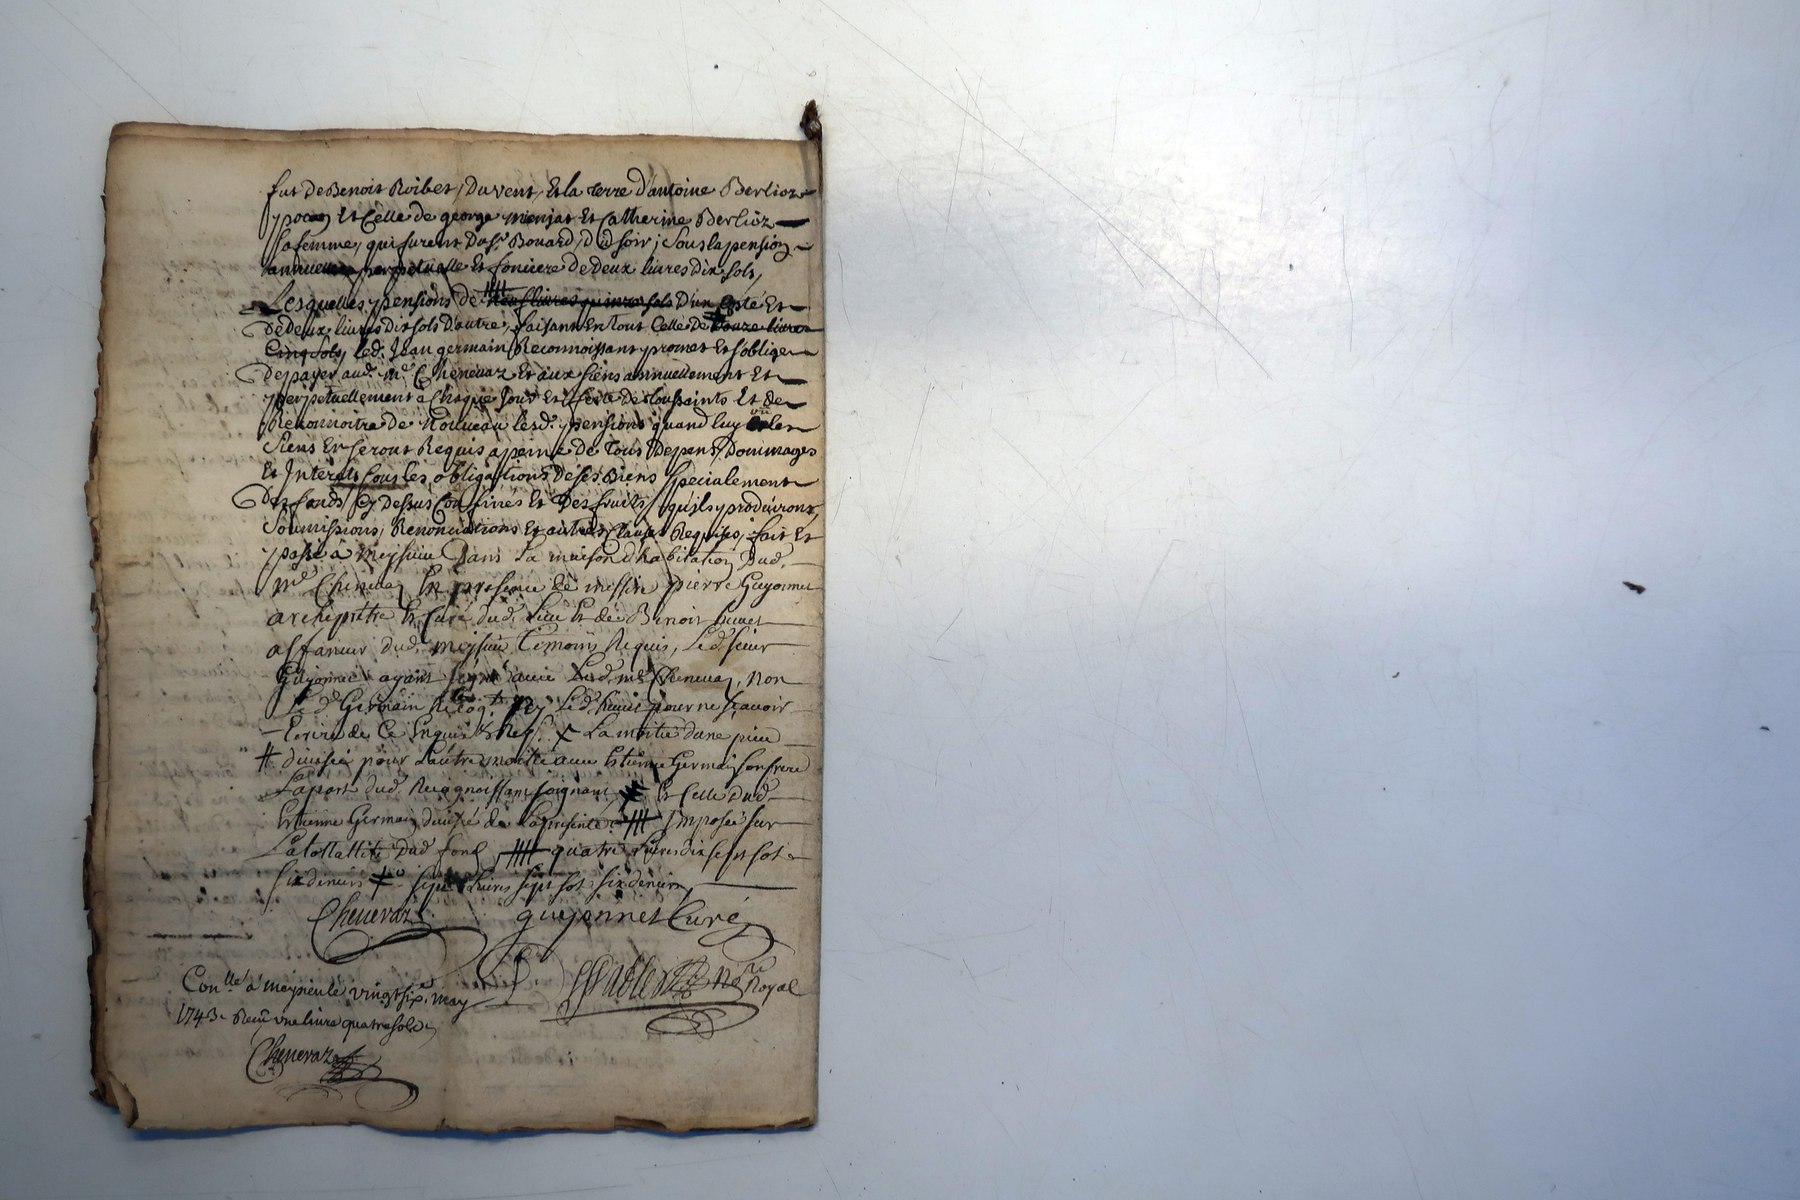 fut de Benoit Roibet, du vent, Et la terre d'antoine Berlioz
Et Celle de george menjat Et Catherine Berlioz
sa femme, qui furent Bouard, du soir; sous la pension
annuelle perpetuelle Et fonciere de Deux livres dix sols,
Lesquelles pensions de neuf livres quinze sols d'un Costé Et
De deux livres Dix sols d'autre, faisant En tout Celle de Douze livres
Cinq sols, led. Jean germain Reconnoissant promet Et s'oblige
De payer aud. me. Chenevaz Et aux siens annuellement Et
perpetuellement a Chaque Jour Et feste de toussaints Et de
Reconnoitre de Nouveau lesd. pensions quand luy ou les
Siens En seront Requis a peine de tous Depens, Dommages
Et Interets sous les obligations de ses Biens specialement
Des fonds Cy dessus Confinés Et Des fruits qu'ils y produiront,
Soumissions, Renonciations Et autres Clauses Requises, fait Et
passé a Meyssiez Dans la maison d'habitation dud.
me. Chenevaz En presence de messire pierre Guyonnet
archipretre Et Curé dud. Lieu Et de Benoit
affaneur dud. Temoins Requis, Led. sieur
Guyonnet ayant signé avec Led. me. Chenevaz, Non
Le d. Germain Recog.t Ny Led. pour ne sçavoir
Ecrire de Ce Enquis La moitié d'une piece
divisée pour L'autre moitié avec Estienne Germain son frere
La part dud. Recognoissant Et Celle dud.
Estienne Germain divisé de La presente Imposée sur
La tottallité Dud. fond quatre Livres dix sept sol
six deniers sept Livres sept sol six deniers
Chenevaz guyonnet Curé
Con.llé à meyssiez le vingt six.e may
Royal
1743. Reçu une livre quatre sols
Chenevaz